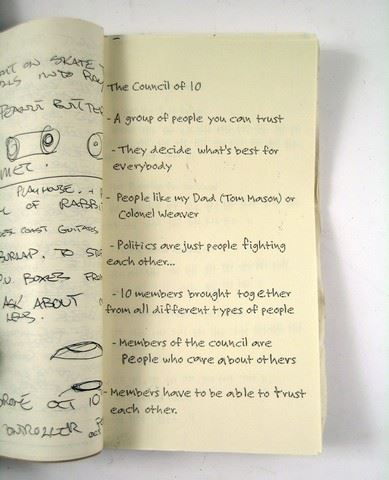 ON SKATE
INTO
PEANUT BUTTER
PLAYHOUSE. +
OF RABBI
COAST GUITARS
BURLAP. TO
BOXES FROM
ASK ABOUT
OCT 10
The Council of 10
- A group of people you can trust
- They decide what's best for
everybody
- People like my Dad (Tom Mason) or
Colonel Weaver
- Politics are just people fighting
each other...
- 10 members brought together
from all different types of people
- Members of the council are
People who care about others
- Members have to be able to trust
each other.